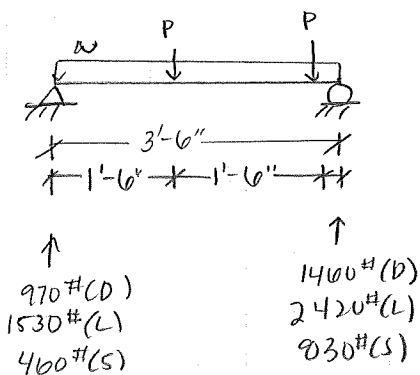 w
P
P
3'-6"
1'-6" 1'-6"
970#(D)
1530#(L)
460#(S)
1460#(D)
2420#(L)
830#(S)